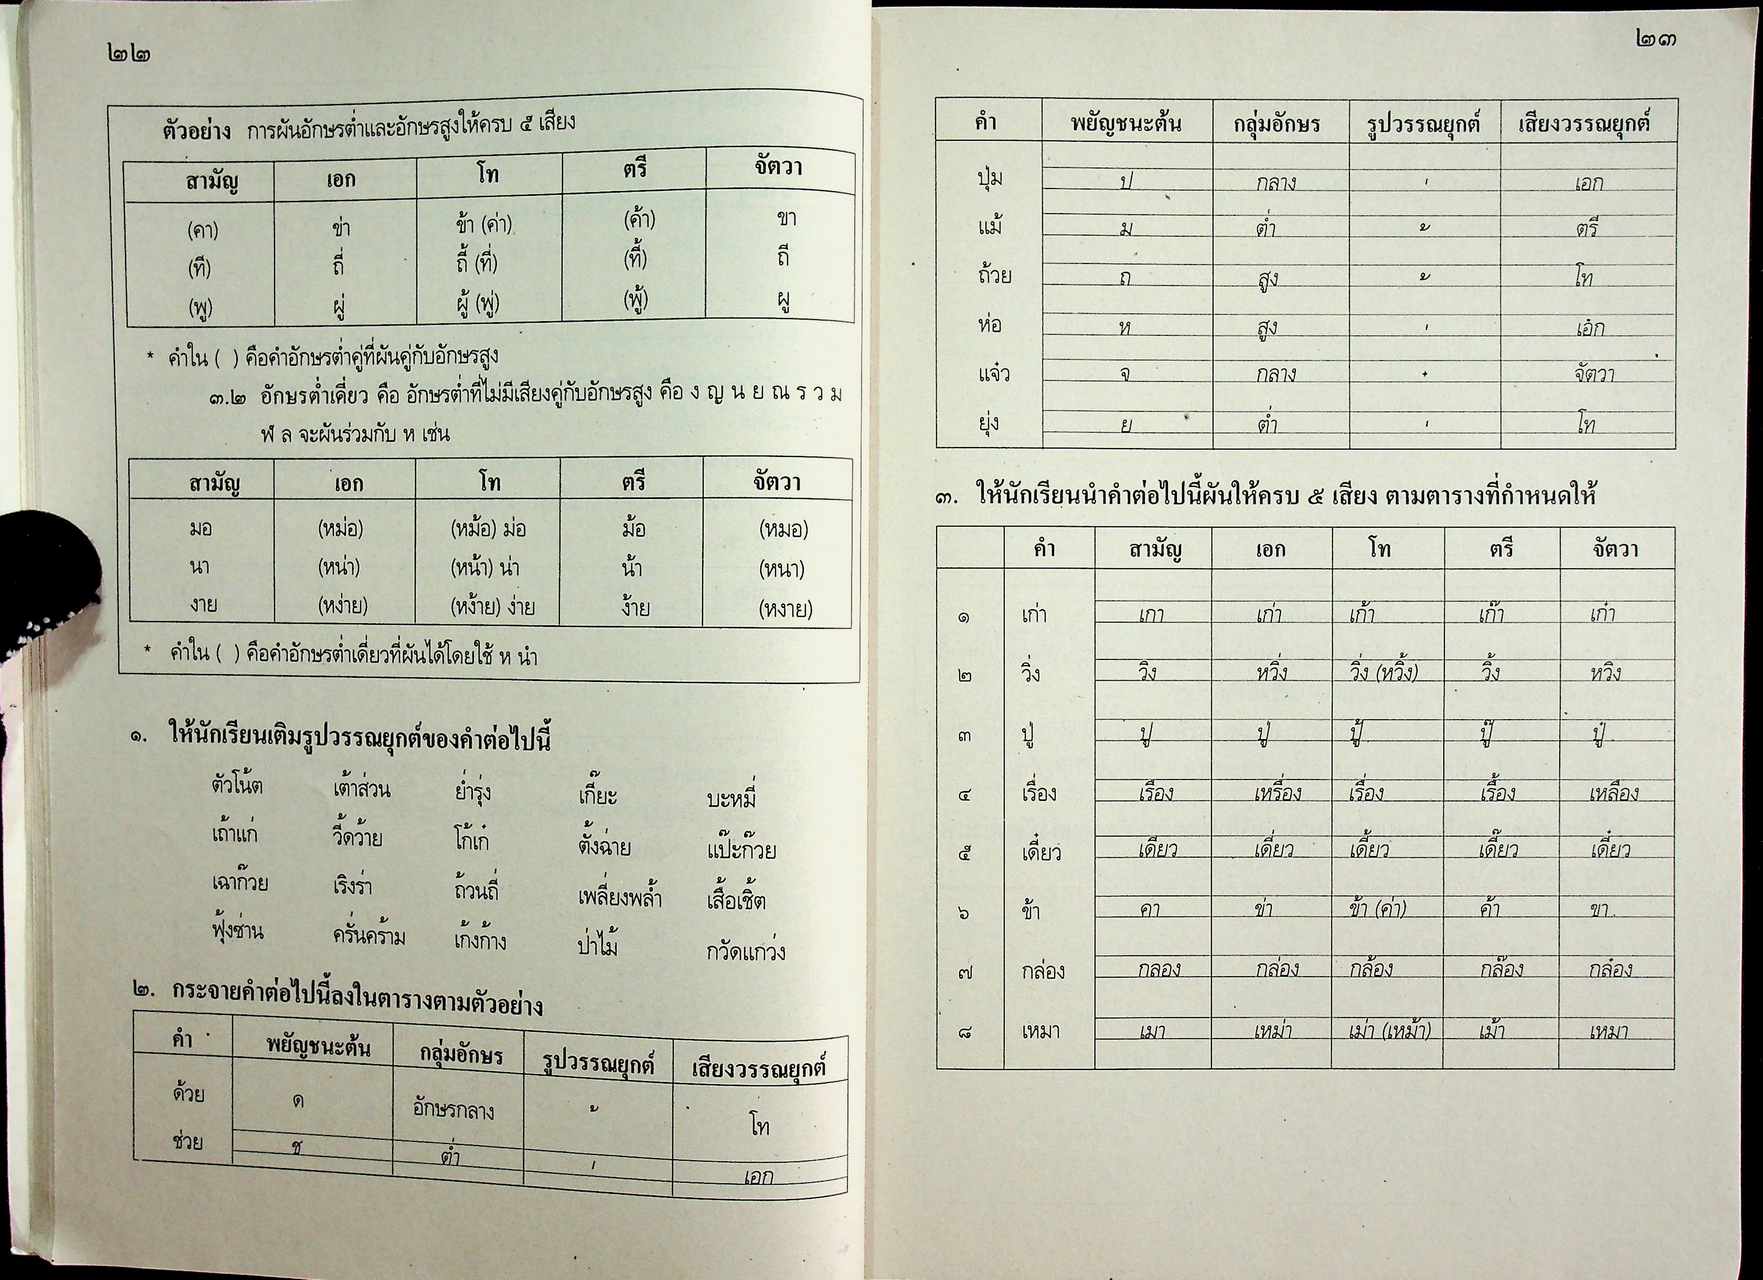 ๒๒
ตัวอย่าง การผันอักษรต่ำและอักษรสูงให้ครบ ๕ เสียง
สามัญ เอก โท ตรี จัตวา
(คา) ข่า ข้า (ค่า) (ค้า) ขา
(ที) ถี่ ถี้ (ที่) (ที้) ถี
(พู) ผู่ ผู้ (พู่) (พู้) ผู
* คำใน ( ) คือคำอักษรต่ำคู่ที่ผันคู่กับอักษรสูง
๓.๒ อักษรต่ำเดี่ยว คือ อักษรต่ำที่ไม่มีเสียงคู่กับอักษรสูง คือ ง ญ น ย ณ ร ว ม
ฬ ล จะผันร่วมกับ ห เช่น
สามัญ เอก โท ตรี จัตวา
มอ (หม่อ) (หม้อ) ม่อ ม้อ (หมอ)
นา (หน่า) (หน้า) น่า น้า (หนา)
งาย (หง่าย) (หง้าย) ง่าย ง้าย (หงาย)
* คำใน ( ) คือคำอักษรต่ำเดี่ยวที่ผันได้โดยใช้ ห นำ
๑. ให้นักเรียนเติมรูปวรรณยุกต์ของคำต่อไปนี้
ตัวโน้ต เต้าส่วน ย่ำรุ่ง เกี๊ยะ บะหมี่
เถ้าแก่ วี้ดว้าย โก้เก๋ ตั้งฉ่าย แป๊ะก๊วย
เฉาก๊วย เริงร่า ถ้วนถี่ เพลี่ยงพล้ำ เสื้อเชิ้ต
ฟุ้งซ่าน ครั่นคร้าม เก้งก้าง ป่าไม้ กวัดแกว่ง
๒. กระจายคำต่อไปนี้ลงในตารางตามตัวอย่าง
คำ พยัญชนะต้น กลุ่มอักษร รูปวรรณยุกต์ เสียงวรรณยุกต์
ด้วย ด อักษรกลาง ้ โท
ช่วย ช ต่ำ ่ เอก
๒๓
คำ พยัญชนะต้น กลุ่มอักษร รูปวรรณยุกต์ เสียงวรรณยุกต์
ปุ่ม ป กลาง ่ เอก
แม้ ม ต่ำ ้ ตรี
ถ้วย ถ สูง ้ โท
ห่อ ห สูง ่ เอก
แจ๋ว จ กลาง ๋ จัตวา
ยุ่ง ย ต่ำ ่ โท
๓. ให้นักเรียนนำคำต่อไปนี้ผันให้ครบ ๕ เสียง ตามตารางที่กำหนดให้
คำ สามัญ เอก โท ตรี จัตวา
๑ เก่า เกา เก่า เก้า เก๊า เก๋า
๒ วิ่ง วิง หวิ่ง วิ่ง (หวิ้ง) วิ้ง หวิง
๓ ปู่ ปู ปู่ ปู้ ปู๊ ปู๋
๔ เรื่อง เรือง เหรื่อง เรื่อง เรื้อง เหลือง
๕ เดี๋ยว เดียว เดี่ยว เดี้ยว เดี๊ยว เดี๋ยว
๖ ข้า คา ข่า ข้า (ค่า) ค้า ขา
๗ กล่อง กลอง กล่อง กล้อง กล๊อง กล๋อง
๘ เหมา เมา เหม่า เม่า (เหม้า) เม้า เหมา